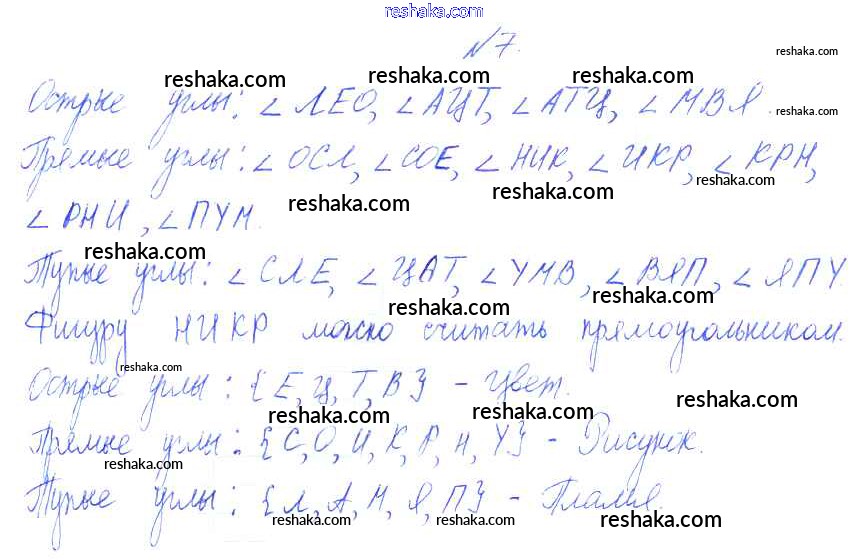 reshaka.com
№7.
reshaka.com
reshaka.com reshaka.com reshaka.com
Острые углы: ∠ЛЕО, ∠АЦТ, ∠АТЦ, ∠МВЯ.
reshaka.com
Прямые углы: ∠ОСЛ, ∠СОЕ, ∠НИК, ∠ИКР, ∠КРН,
reshaka.com reshaka.com
∠РНИ, ∠ПУМ.
reshaka.com
reshaka.com
Тупые углы: ∠СЛЕ, ∠ЦАТ, ∠УМВ, ∠ВЯП, ∠ЯПУ.
reshaka.com reshaka.com
Фигуру НИКР можно считать прямоугольником.
reshaka.com
Острые углы: {Е, Ц, Т, В} - Цвет.
reshaka.com reshaka.com reshaka.com
Прямые углы: {С, О, И, К, Р, Н, У} - Рисунок.
reshaka.com
Тупые углы: {Л, А, М, Я, П} - Пламя.
reshaka.com reshaka.com reshaka.com